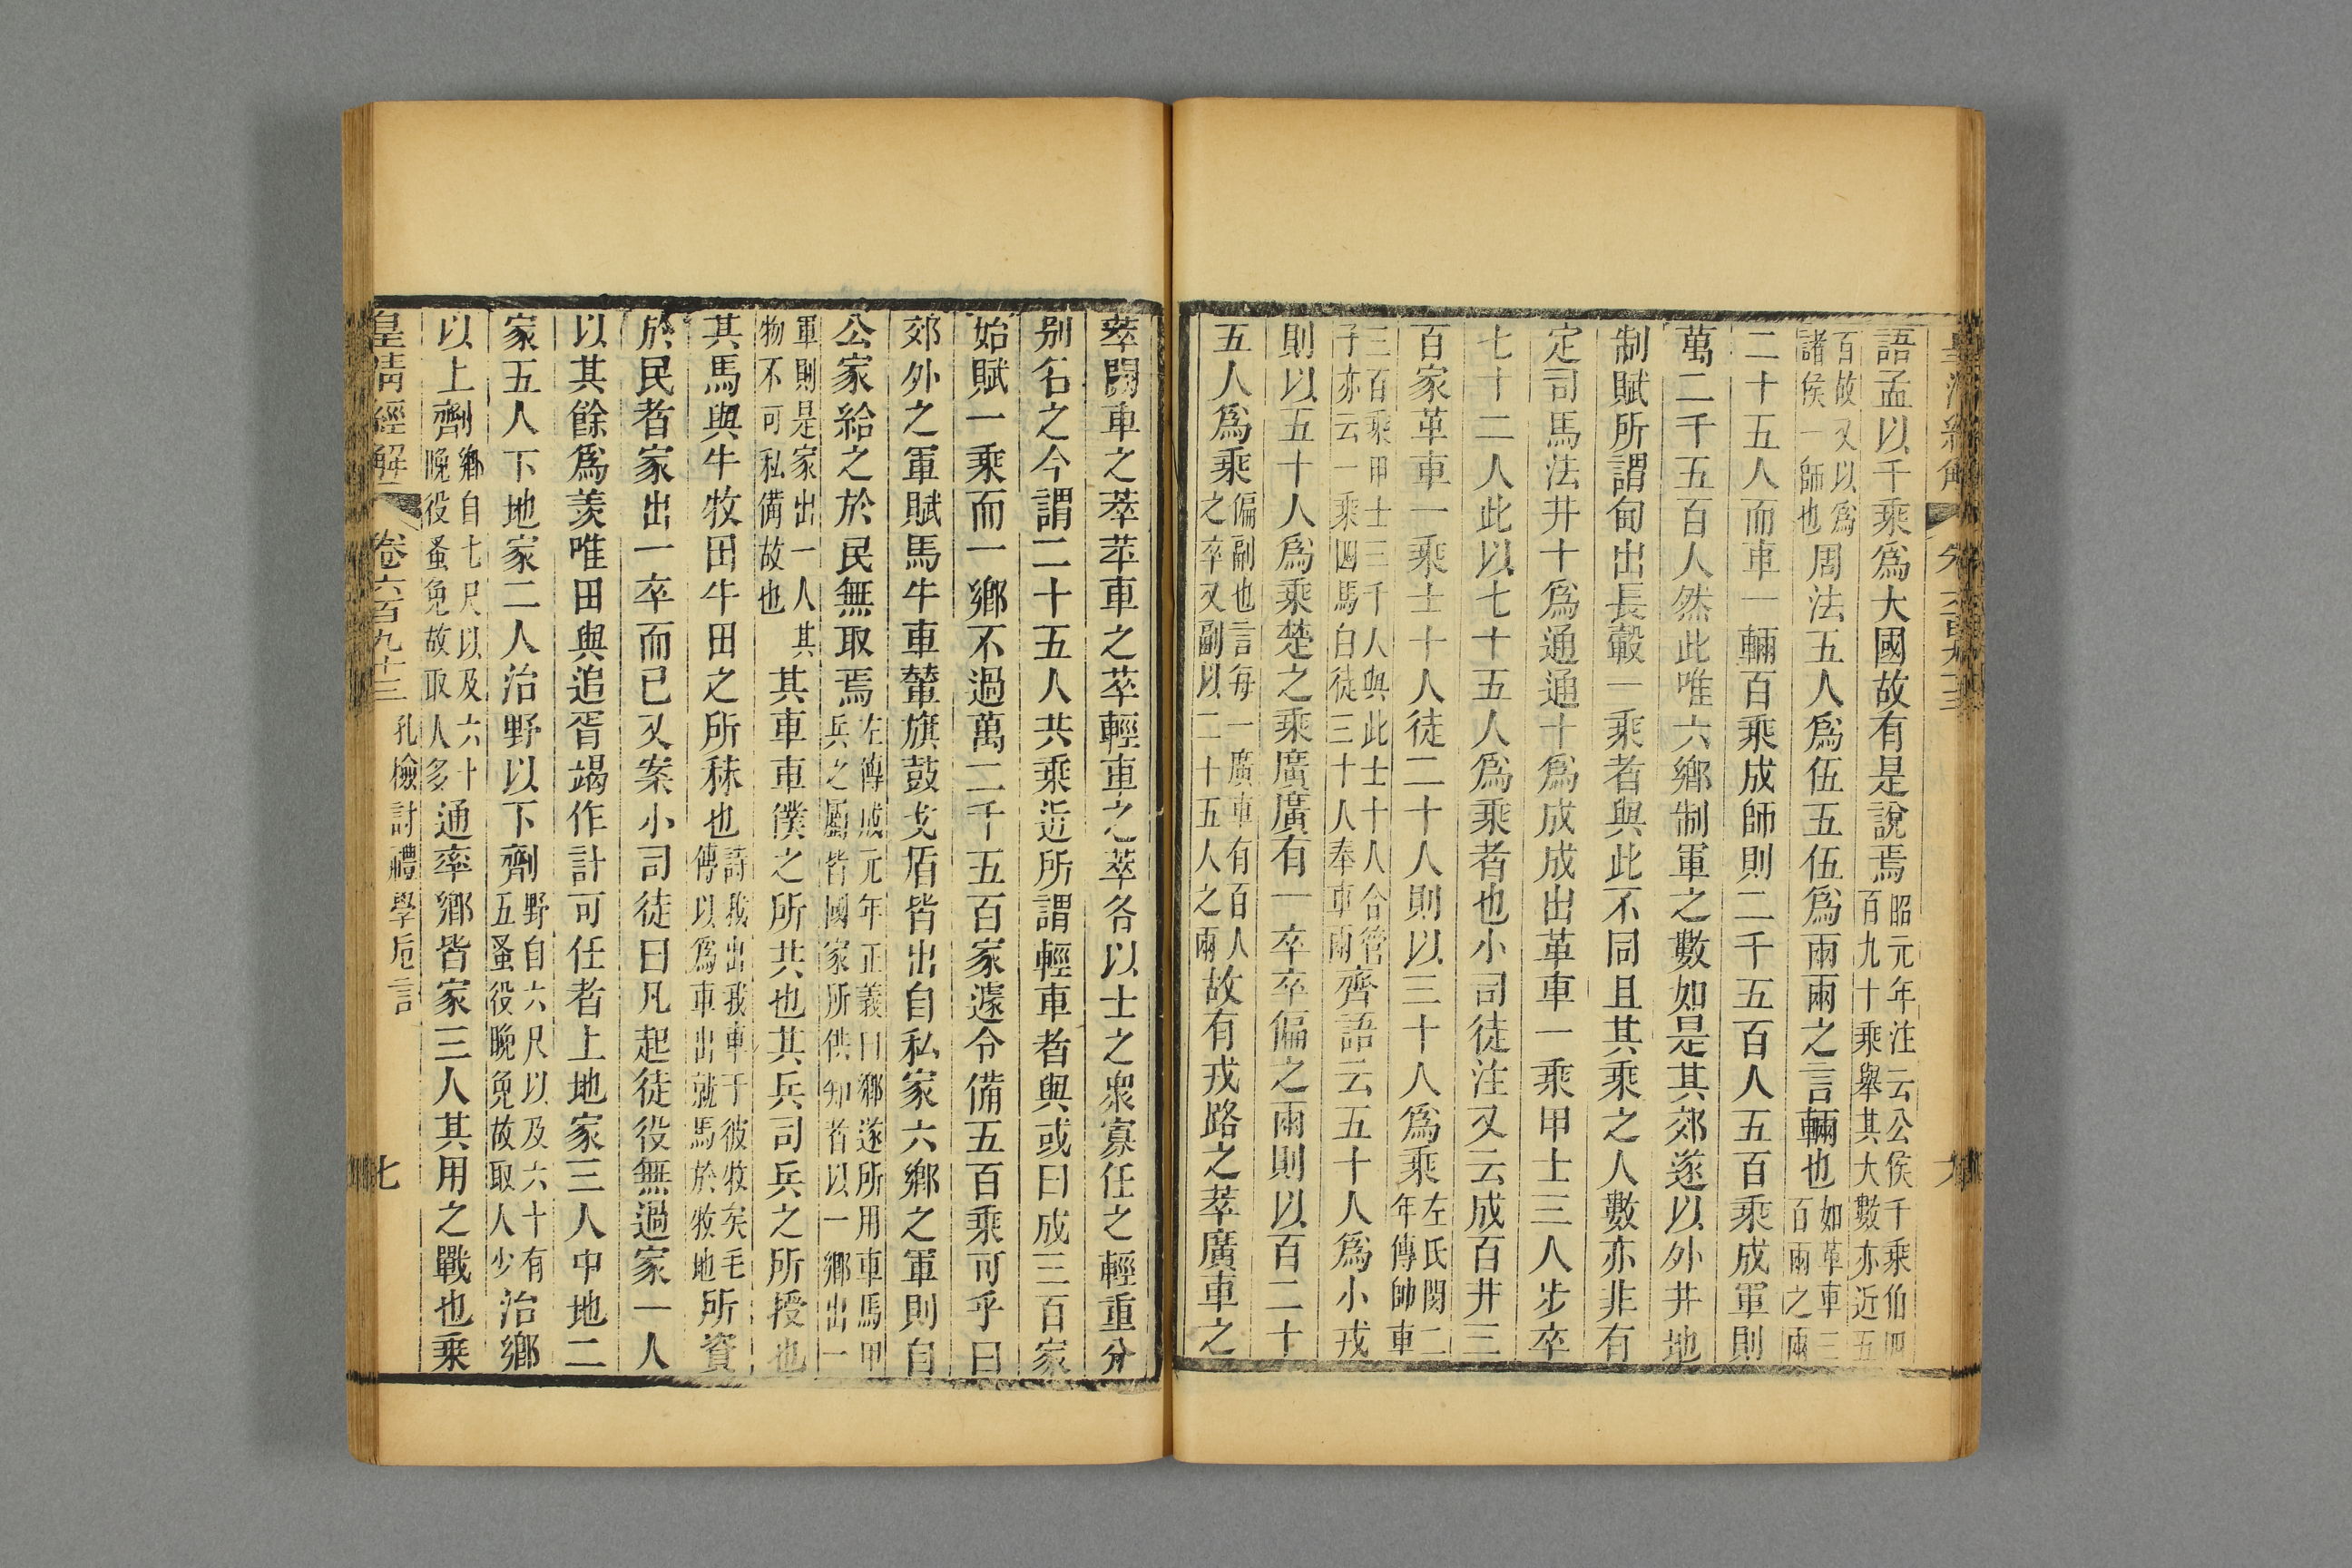 語孟以千乘爲大國故有是說焉昭元年注云公侯千乘伯四百九十乘舉其大數亦近五
百故又以爲諸侯一師也周法五人爲伍五伍爲兩兩之言輛也如革車三百兩之兩
二十五人而車一輛百乘成師則二千五百人五百乘成軍則
萬二千五百人然此唯六鄉制軍之數如是其郊遂以外井地
制賦所謂甸出長轂一乘者與此不同且其乘之人數亦非有
定司馬法井十爲通通十爲成成出革車一乘甲士三人步卒
七十二人此以七十五人爲乘者也小司徒注又云成百井三
百家革車一乘士十人徒二十人則以三十人爲乘左氏閔二年傳帥車
三百乘甲士三千人與此士十人合管子亦云一乘四馬白徒三十人奉車兩齊語云五十人爲小戎
則以五十人爲乘楚之乘廣廣有一卒卒偏之兩則以百二十
五人爲乘偏副也言每一廣車有百人之卒又副以二十五人之兩故有戎路之萃廣車之
萃闕車之萃苹車之萃輕車之萃各以士之衆寡任之輕重分
别名之今謂二十五人共乘近所謂輕車者與或曰成三百家
始賦一乘而一鄉不過萬二千五百家遽令備五百乘可乎曰
郊外之軍賦馬牛車輦旗鼓戈盾皆出自私家六鄉之軍則自
公家給之於民無取焉左傳成元年正義曰鄉遂所用車馬甲兵之屬皆國家所供知者以一鄉出一
軍則是家出一人其物不可私備故也其車車僕之所共也其兵司兵之所授也
其馬與牛牧田牛田之所秣也詩我出我車于彼牧矣毛傳以爲車出就馬於牧地所資
於民者家出一卒而已又案小司徒曰凡起徒役無過家一人
以其餘爲羨唯田與追胥竭作計可任者上地家三人中地二
家五人下地家二人治野以下劑野自六尺以及六十有五蚤役晚免故取人少治鄉
以上劑鄉自七尺以及六十晚役蚤免故取人多通率鄉皆家三人其用之戰也乘
皇清經解 卷六百九十三 孔檢討禮學卮言 七